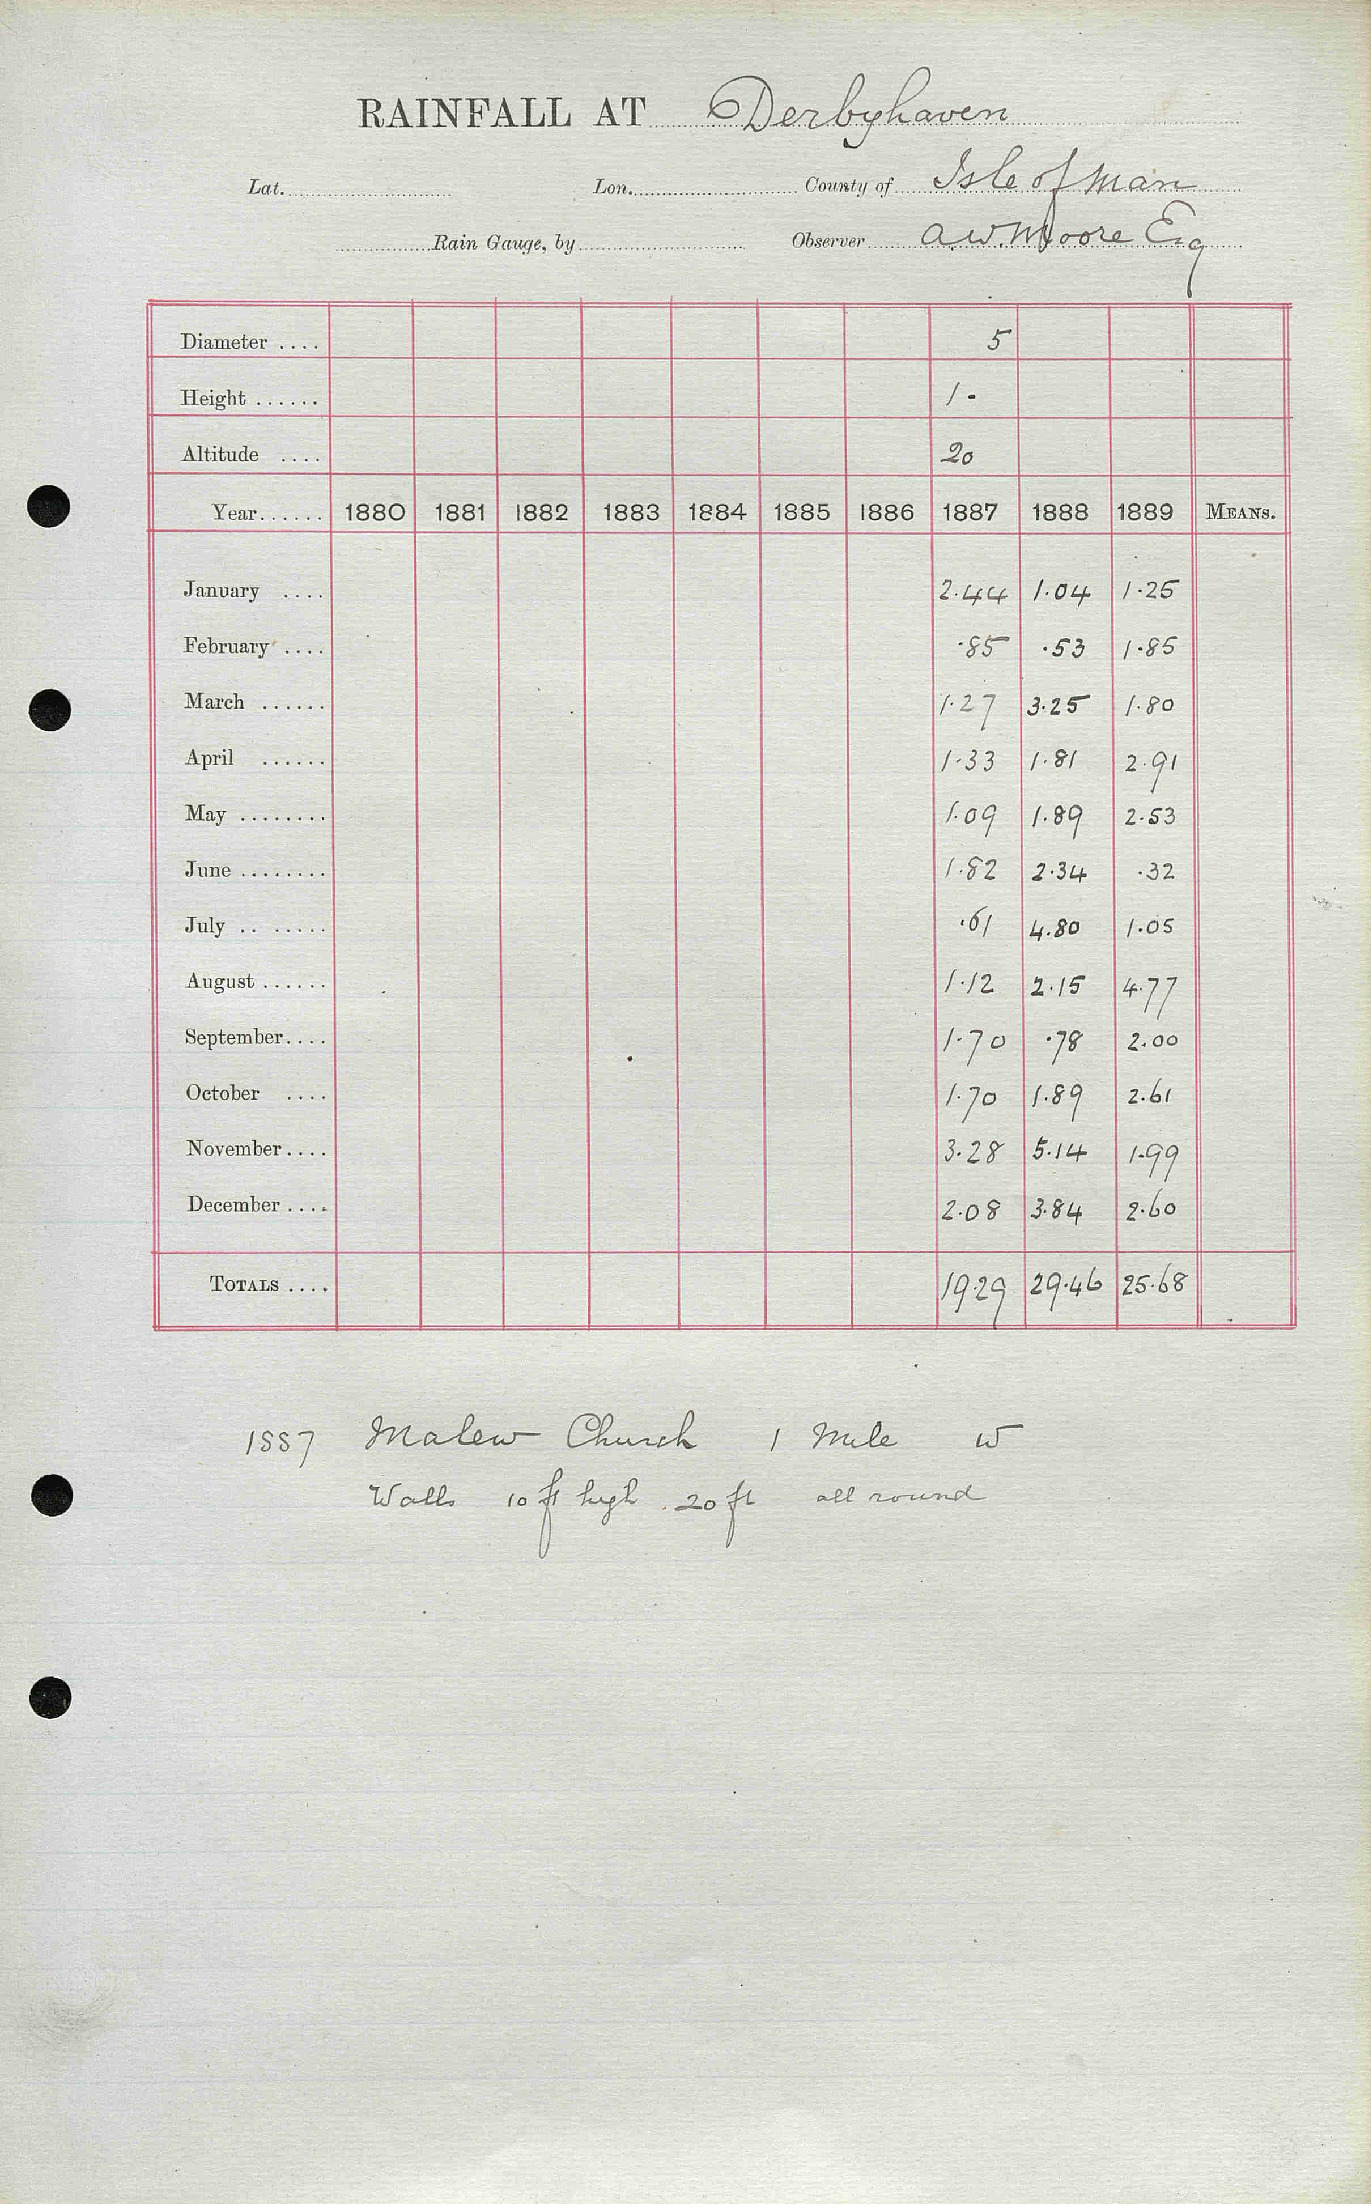 RAINFALL AT Derbyhaven
Lat. Lon. County of Isle of Man
Rain Gauge, by Observer A.W. Moore Esq
Diameter .... 5
Height ...... 1 -
Altitude .... 20
Year...... 1880 1881 1882 1883 1884 1885 1886 1887 1888 1889 MEANS.
January .... 2.44 1.04 1.25
February .... .85 .53 1.85
March ...... 1.27 3.25 1.80
April ...... 1.33 1.81 2.91
May ........ 1.09 1.89 2.53
June ........ 1.82 2.34 .32
July .. ..... .61 4.80 1.05
August ...... 1.12 2.15 4.77
September.... 1.70 .78 2.00
October .... 1.70 1.89 2.61
November.... 3.28 5.14 1.99
December .... 2.08 3.84 2.60
TOTALS .... 19.29 29.46 25.68
1887 Malew Church 1 Mile W
Walls 10 ft high . 20 ft all round